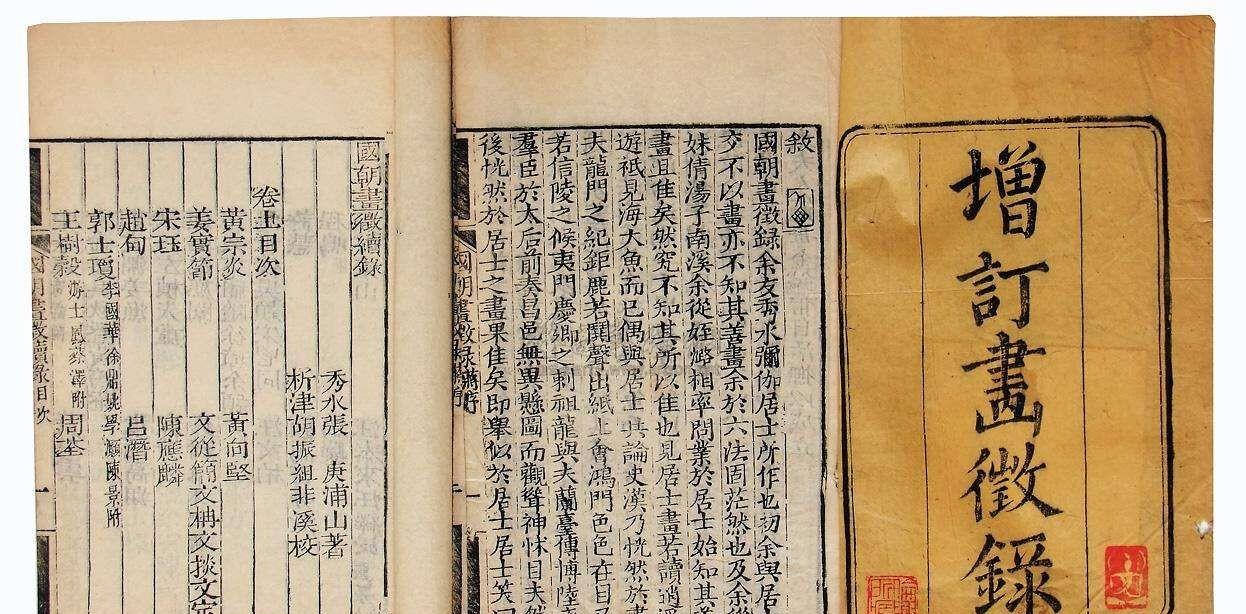 增訂畫徵錄
敘
國朝畫徵録余友秀水彌伽居士所作也初余與居
交不以畫亦不知其善畫余於六法固茫然也及余
妹倩湯子南溪余從姪燐相率問業於居士始知其
畫且佳矣然究不知其所以佳也見居士畫若讀消
遊祇見海大魚而已偶與居士共論史漢乃恍然於
夫龍門之紀鉅鹿若聞聲出紙上會鴻門色色在目
若信陵之候夷門慶卿之刺祖龍與夫蘭臺傳博陸
羣臣於太后前奏昌邑無異懸圖而觀聳神怵目夫然
後恍然於居士之畫果佳矣即舉似於居士居士笑曰
國朝畫徵續錄
秀水張 庚浦山著
析津胡振組非溪校
卷上目次
黃宗炎 黃向堅
姜實節 文從簡文柟文掞文定
宋珏 陳應麟
趙甸 呂潛
郭士瓊李國華徐鼎姚學灝陳景附
王樹穀 附 周荃
國朝畫徵續錄目次